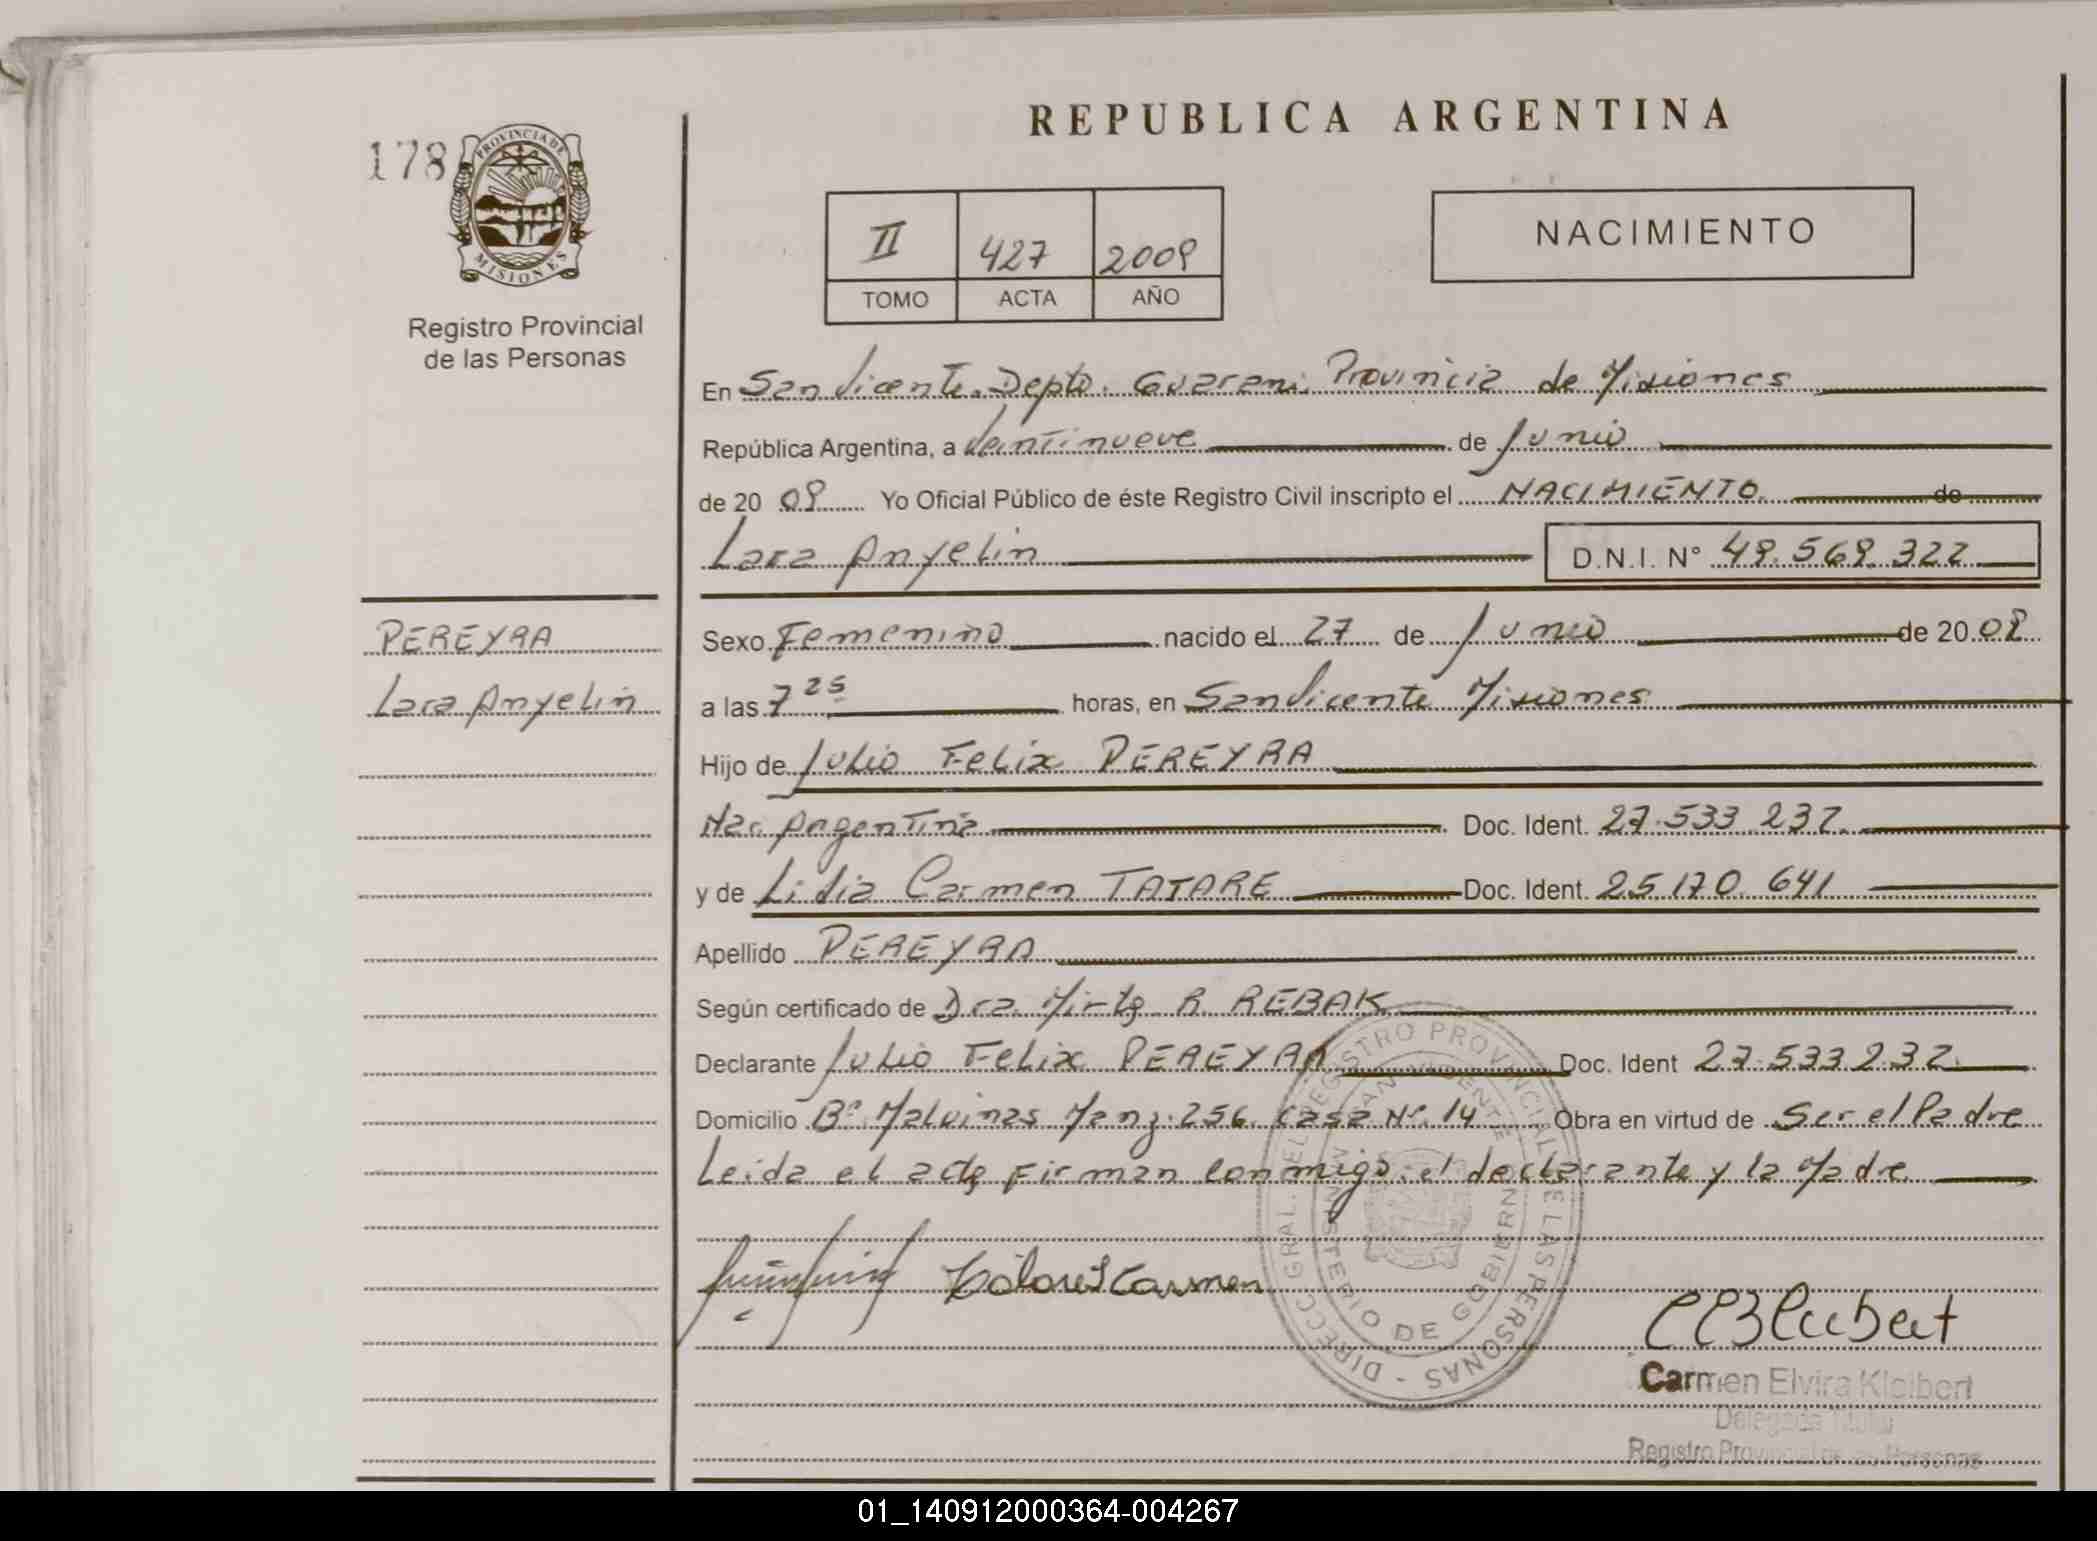 REPUBLICA ARGENTINA
178
PROVINCIA DE
MISIONES
Registro Provincial
de las Personas
II 427 2009
TOMO ACTA AÑO
NACIMIENTO
En San Vicente. Depto. Guarani Provincia de Misiones
República Argentina, a Veintinueve de Junio
de 20 09 Yo Oficial Público de éste Registro Civil inscripto el NACIMIENTO de
Lara Anyelin D.N.I. Nº 49.569.322
PEREYRA
Lara Anyelin
Sexo Femenino nacido el 27 de Junio de 20 09
a las 7 25 horas, en San Vicente Misiones
Hijo de Julio Felix PEREYRA
Nac. Argentina Doc. Ident. 27.533.237
y de Lidia Carmen TATARE Doc. Ident. 25.170.641
Apellido PEREYRA
Según certificado de Dra. Mirta R. REBAK
Declarante Julio Felix PEREYRA Doc. Ident 27.533.237
Domicilio Bº Malvinas Manz. 256 Casa Nº 14 Obra en virtud de Ser el Padre
Leida el acta Firman Conmigo el declarante y la Madre
DIRECC GRAL. DEL REGISTRO PROVINCIAL DE LAS PERSONAS
MINISTERIO DE GOBIERNO
SAN VICENTE
Carmen
Carmen Elvira Kleibert
Delegada Titular
Registro Provincial de las Personas
01_140912000364-004267